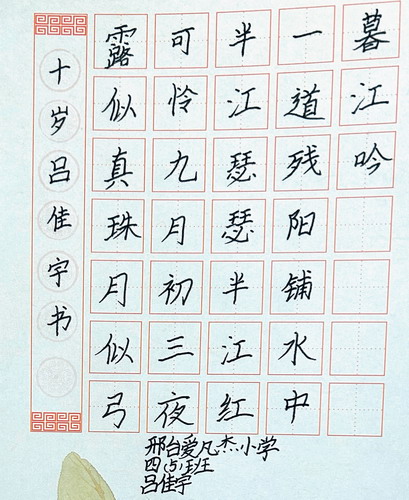 暮江吟
一道残阳铺水中
半江瑟瑟半江红
可怜九月初三夜
露似真珠月似弓
十岁吕佳宇书
邢台爱凡杰小学
四(5)班
吕佳宇